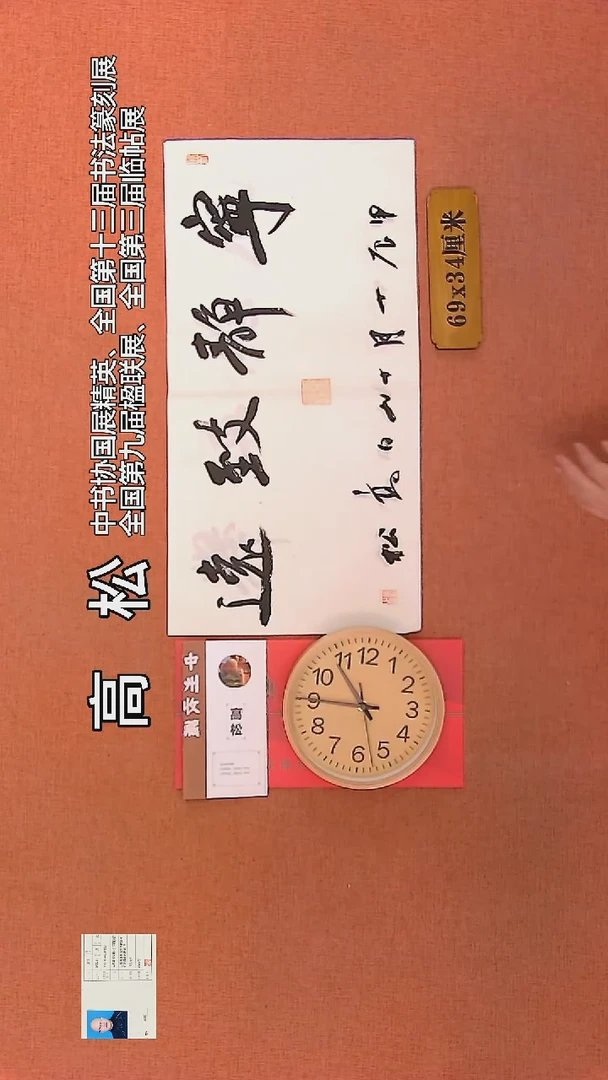 高 松
中书协国展精英、全国第十三届书法篆刻展
全国第九届楹联展、全国第三届临帖展
寧靜致遠
甲辰十月
日高松
69x34厘米
高松
12
1
2
3
4
5
6
7
8
9
10
11